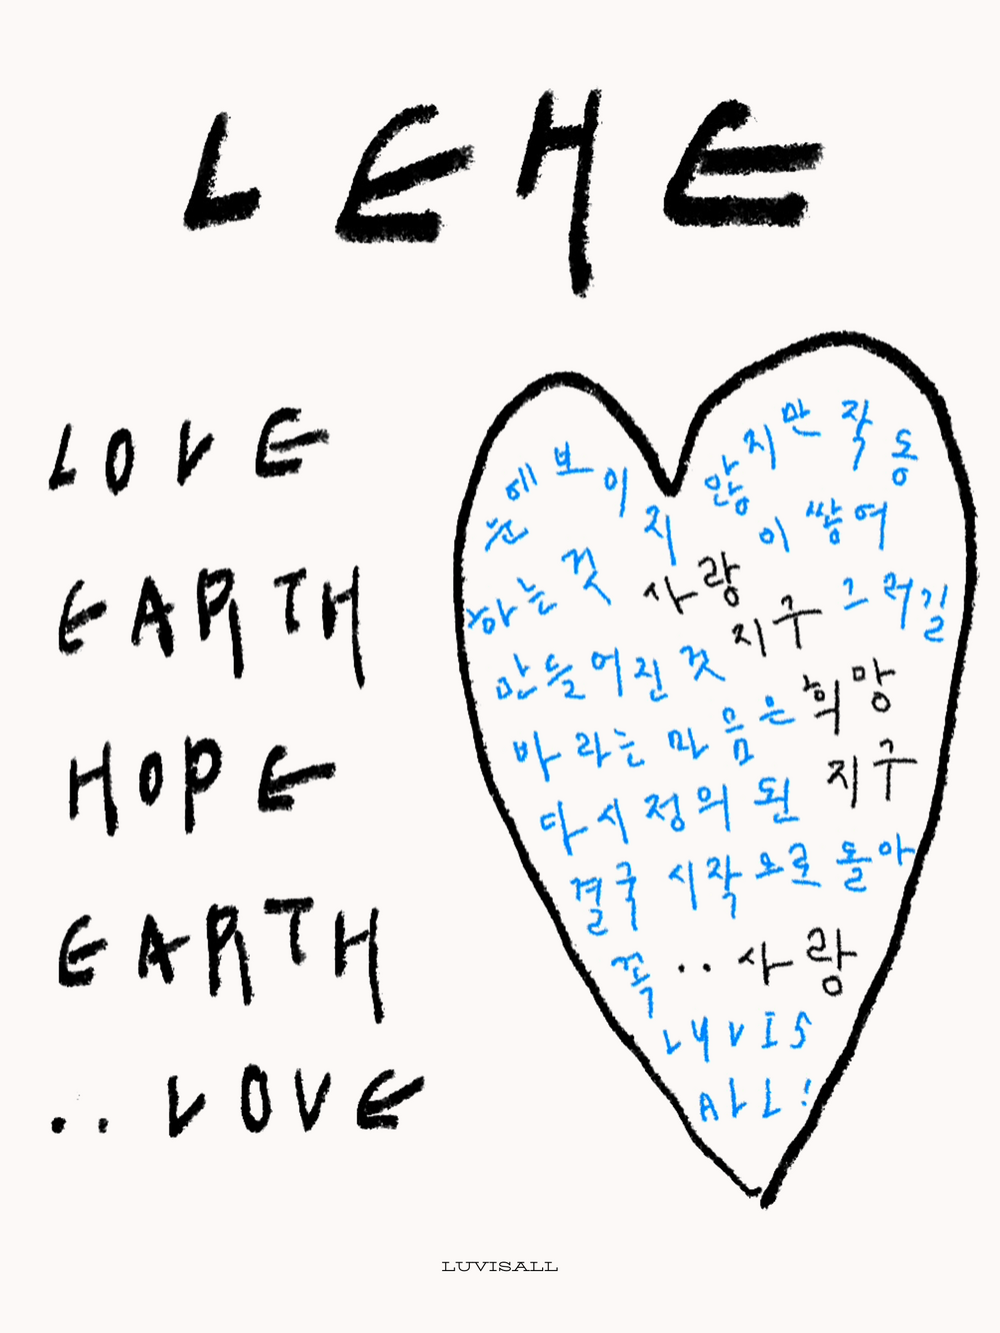 LEHE
LOVE
EARTH
HOPE
EARTH
..LOVE
눈에 보이지 않지만 작동
하는 것 사랑이 쌓여
만들어진 것 지구 그러길
바라는 마음은 희망
다시 정의 된 지구
결국 시작으로 돌아
꼭 .. 사랑
LUVIS
ALL!
LUVISALL